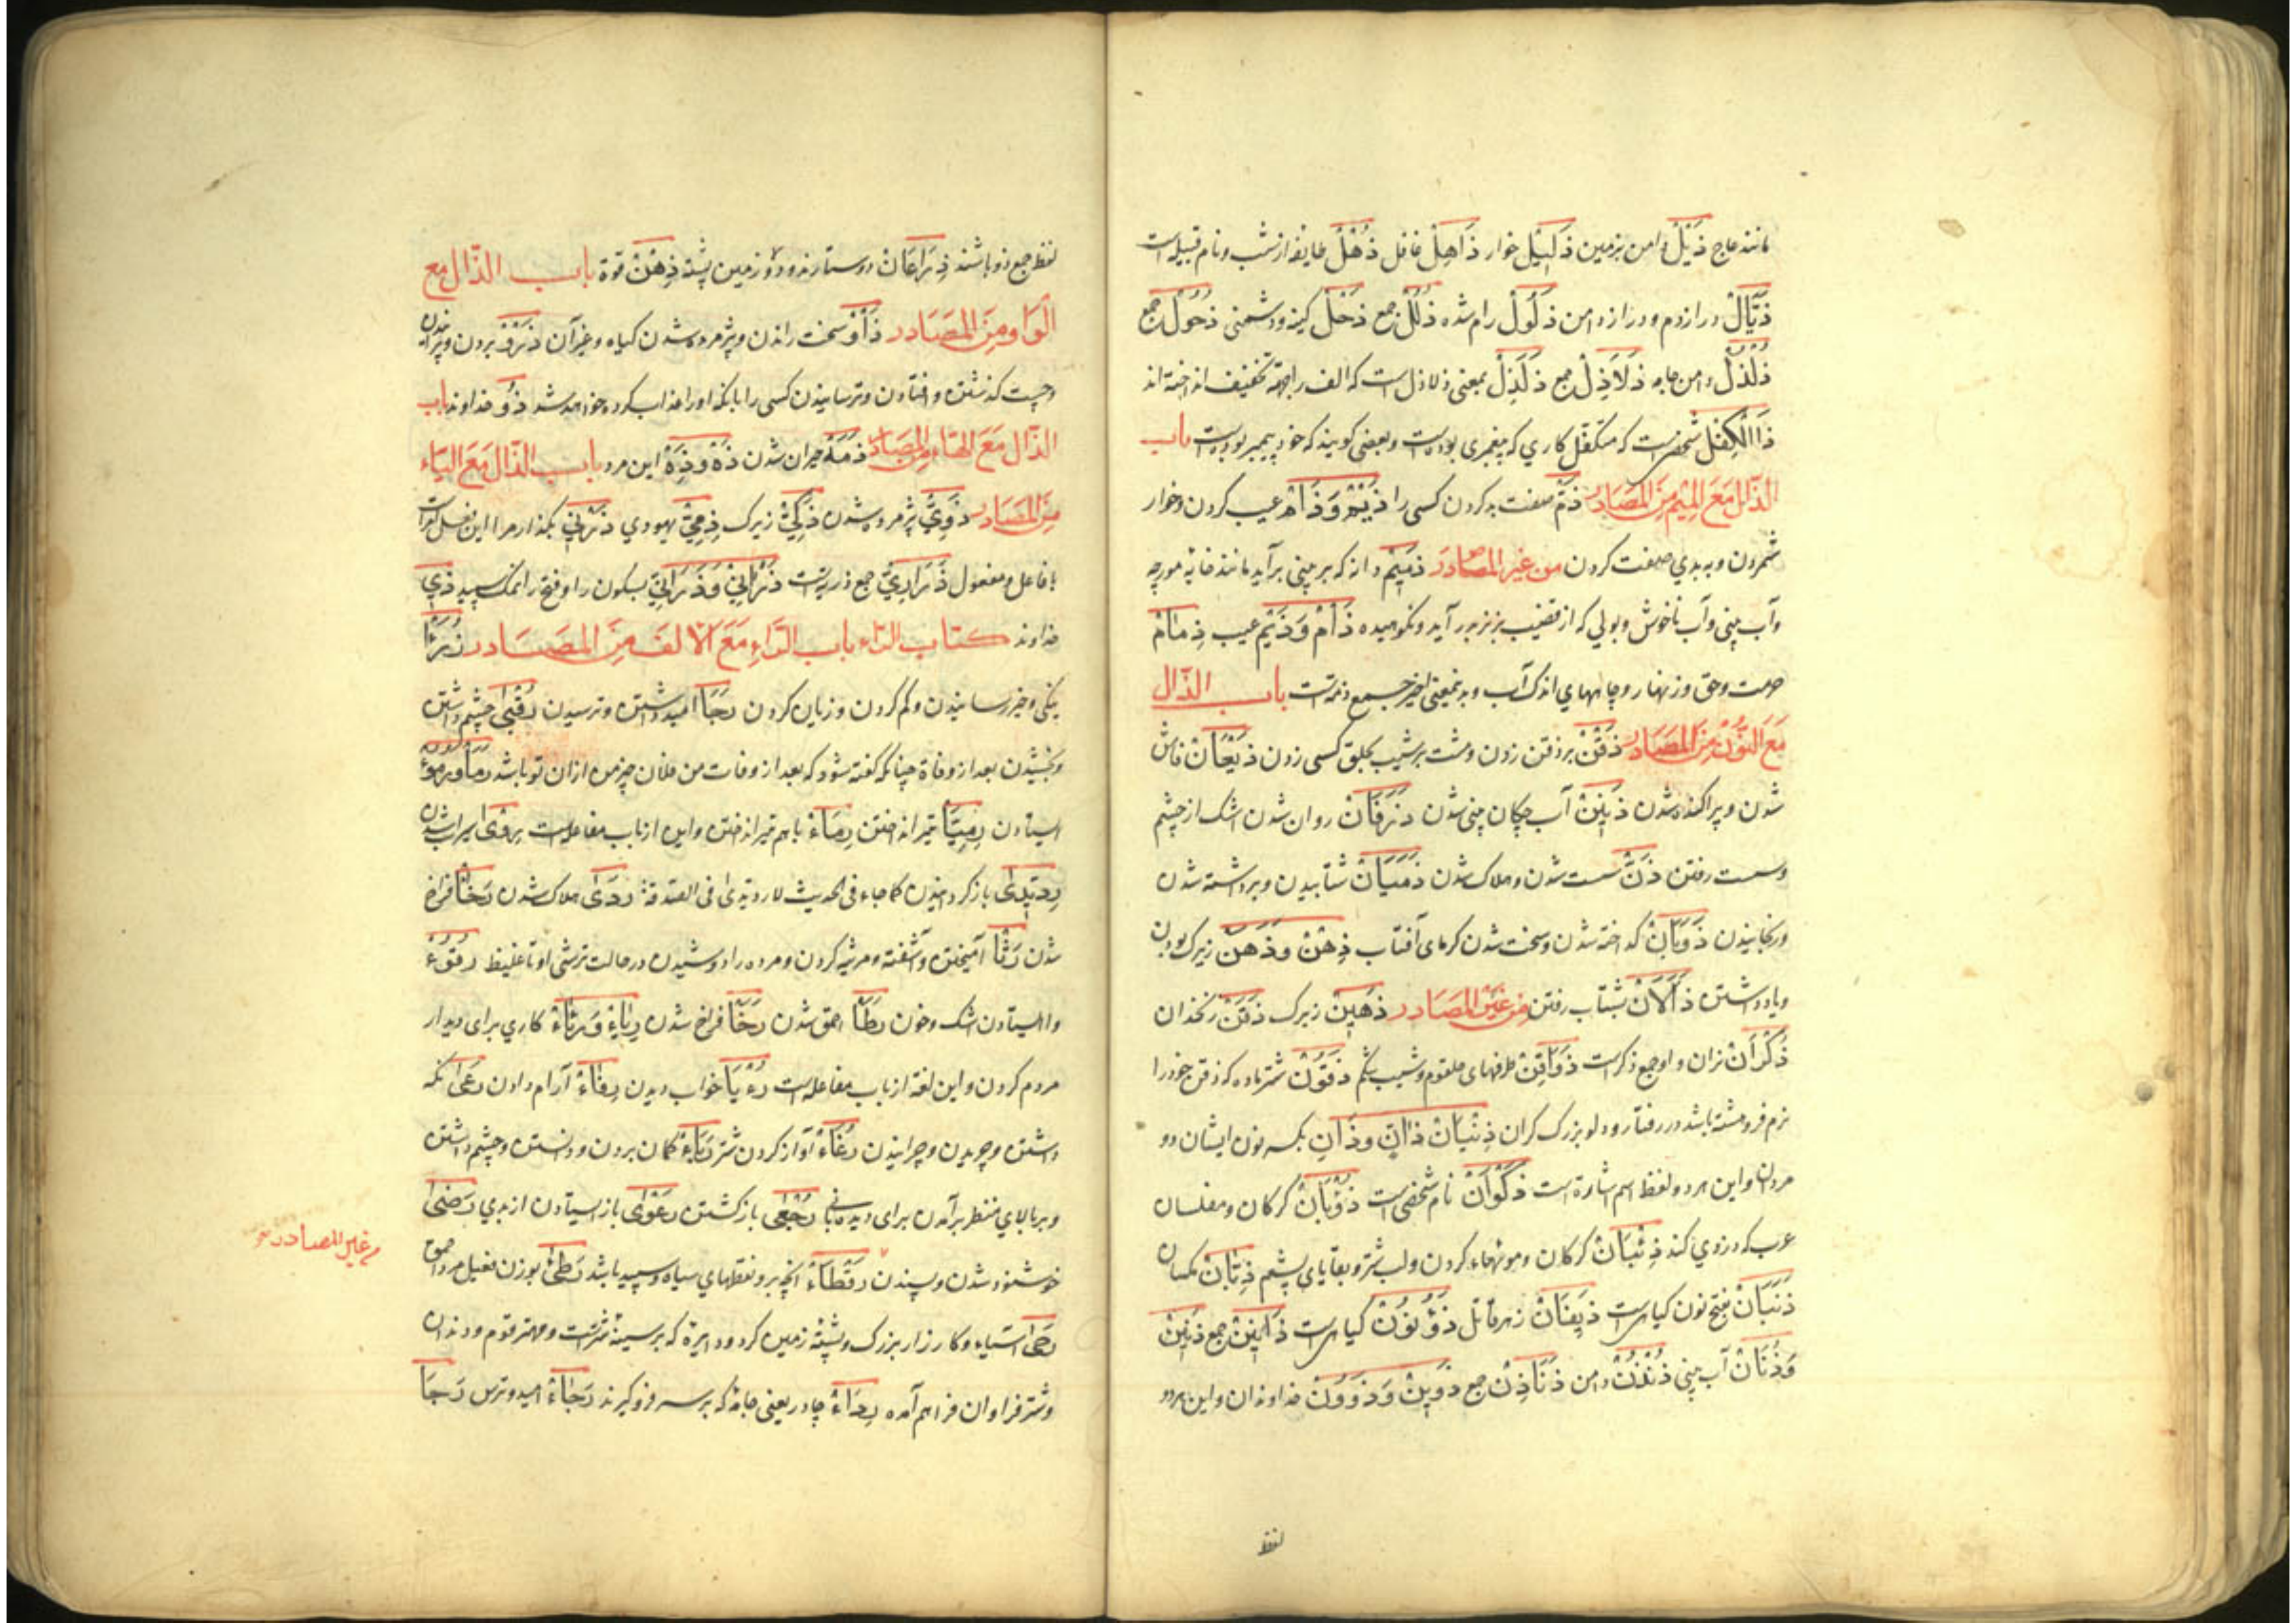 مانند عاج ذَیْلْ دامن بزمین ذَلِیْلْ خوار ذَاهِلْ غافل ذُهْلْ طایفه از شب و نام قبیله است
ذَیَّالْ دراز دم و دراز دامن ذَلُولْ رام شده ذُلُلْ جمع ذَحْلْ کینه و دشمنی ذُحُولْ جمع
ذُلْذُلْ دامن جامه ذَلَاذِلْ جمع ذَلَذِلْ بمعنی ذلاذل است که الف را بجهة تخفیف انداخته اند
ذَاالْکِفْلْ شخصی است که متکفل کاری که پیغمبری بوده است و بعضی گویند که خود پیغمبر بوده است باب
الذّال مَعَ المِیْم مِنَ المَصَادر ذَمّ صفت بد کردن کسی را ذَیْمْ وَ ذَامْ عیب کردن و خوار
شمردن و به بدی صفت کردن من غیر المصادر ذَمِیْم دانه که بر بینی برآید مانند خایه مورچه
و آب بینی و آب ناخوش و بولی که از قضیب بز نر بدر آید و نکوهیده ذَامْ وَ ذَیْم عیب ذِمَامْ
حرمت و حق و زنهار و چاههای اندک آب و بدینمعنی اخیر جمع ذمّه است باب الذّال
مَعَ النّوُن مِنَ المَصَادر ذَقْنْ بر ذقن زدن و مشت بر شیب حلق کسی زدن ذَیَعَانْ فاش
شدن و پراکنده شدن ذَنِیْنْ آب چکان بینی شدن ذَرَفَانْ روان شدن اشک از چشم
و سست رفتن ذَنّ سست شدن و هلاک شدن ذَمَیَانْ شتابیدن و برداشته شدن
و رنجانیدن ذَوَبَانْ گداخته شدن و سخت شدن گرمای آفتاب ذِهْنْ و ذَهَنْ زیرک بودن
و یاد داشتن ذَأَلَانْ بشتاب رفتن من غَیْر المَصَادر ذَهِیْنْ زیرک ذَقَنْ زنخدان
ذُکْرَانْ نران و او جمع ذکر است ذَوَاقِنْ طرفهای حلقوم و شیب شکم ذَقُوْنْ شتر ماده که ذقن خود را
نرم فرو هشته باشد در رفتار و دلو بزرگ گران ذِئْبَانْ ذَانِ وذَانِ بکسر نون ایشان دو
مردان و این هر دو لفظ اسم اشاره است ذَکْوَانْ نام شخصی است ذُؤْبَانْ گرگان و مفلسان
عرب که دزدی کنند ذِئْبَانْ گرگان و مویهاء گردن و لب شتر و بقایای پشم ذِبَّانْ مگسان
ذَنَبَانْ بفتح نون گیاهی است ذَیفَانْ زهر قاتل ذُوْنُوْن گیاهی است ذَآنِیْنْ جمع ذَنِیْنْ
وَذُنَانْ آب بینی ذُنْذُنْ دامن ذَنَاذِنْ جمع ذَوِیْنْ وَ ذَوَوُنْ خداوندان و این هر دو
لفظ
لفظ جمع ذو باشند ذِرَاعَانْ دو ستاره‌اند و دو زمین پشته ذِهْنْ قوّة باب الذّال مع
الوَاو مِنَ المَصَادر ذَأْوْ سخت راندن و پژمرده شدن گیاه و غیر آن ذَرْوْ بردن و پرانیدن
و چست گذشتن و افتادن و ترسانیدن کسی را بآنکه او را عذاب کرده خواهد شد ذُو خداوند باب
الذّال مَعَ الهَاء مِن المَصَادر ذَمَهْ حیران شدن ذَهْ وَ ذِهْ این مرد باب الذّال مَعَ الیَاء
مِنَ المَصَادر ذَوِیّ پژمرده شدن ذَکِیّ زیرک ذِمِیّ یهودی ذَرْنِیْ بگذار مرا این فعل امر است
با فاعل و مفعول ذَرَارِیّ جمع ذریّه است ذَرْانِیْ وَ ذَرَانِیّ بسکون را و فتح را نمک سپید ذِی
خداوند کتاب الرّاء باب الرّاءِ مَعَ الاَلف مِنَ المصَادر رُزْءً
نیکی و خیر رسانیدن و کم کردن و زیان کردن رَجَا امید داشتن و ترسیدن رُقْبٰی چشم داشتن
و بخشیدن بعد از وفاة چنانکه گفته شود که بعد از وفات من فلان چیز من از ان تو باشد
ایستادن رِمِیَّا تیر انداختن رِمَاءْ با هم تیر انداختن و این از باب مفاعله است رِوٰی سیراب شدن
رِدّیدٰی باز گردانیدن کما جاء فی الحدیث لا ردّیدی فی الصّدقة رَدٰی هلاک شدن رَخَا فراخ
شدن رَثَا آمیختن و آشفتن و مرثیه کردن و مرده را دوشیدن در حالت ترشی او تا غلیظ رُقُوْءْ
وا ایستادن اشک و خون رَطَأْ احمق شدن رَخَا فراخ شدن رِیَاءْ وَ رِئَاءْ کاری برای دیدار
مردم کردن و این لغة از باب مفاعله است رُؤْیَا خواب دیدن رِفَاءْ آرام دادن رَعَیٰ نگه
داشتن و چریدن و چرانیدن رُغَاءْ آواز کردن شتر گمان بردن و دانستن و چشم داشتن
و بر بالای منظر برآمدن برای دیده‌بانی رُجْعٰی باز گشتن رَعْوٰی باز ایستادن از بدی رِضٰی
خوشنود شدن و پسندن رَقْطَاءْ آنچه برو نقطهای سیاه و سپید باشد رَطِیْ بوزن فعیل مرد احمق
رَحٰی آسیاء و کارزار بزرگ و پشته زمین گرد و دایرهٔ که بر سینه شتر است و مهتر قوم و دندان
و شتر فراوان فراهم آمده رِدَاءْ چادر یعنی جامه که بر سر فرو گیرند رَجَاءْ امید و ترس رَجَا
من غیر المصادر